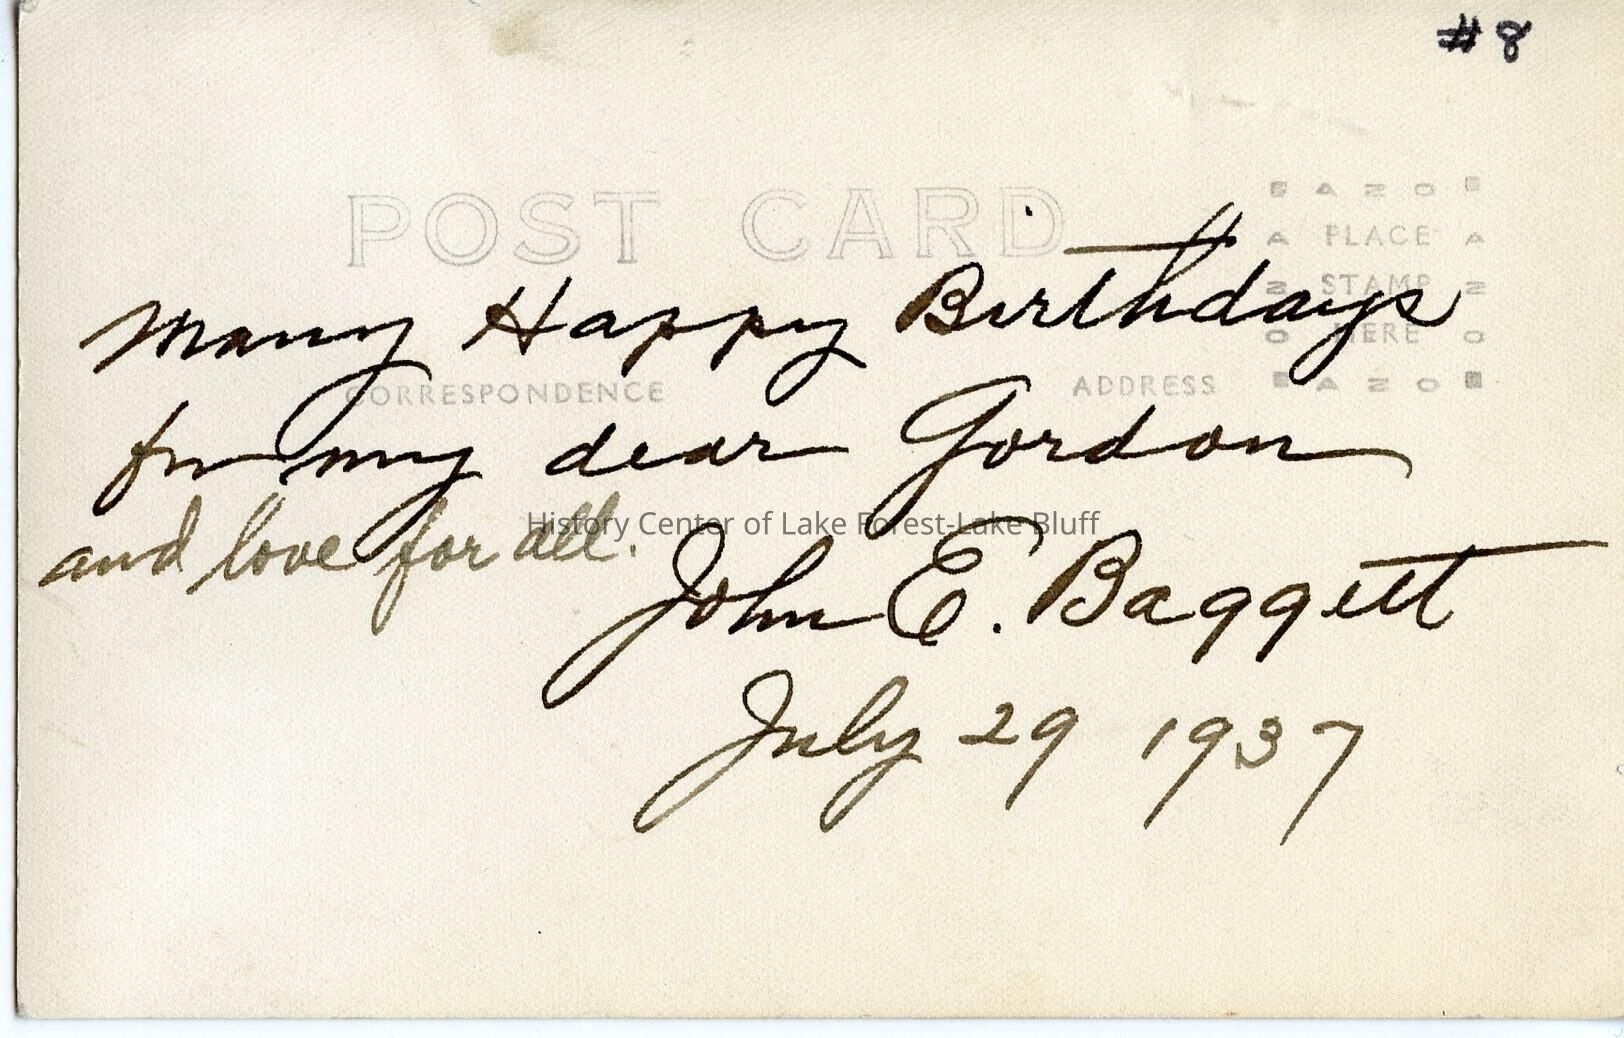 #8
POST CARD
AZO
PLACE
STAMP
HERE
AZO
Many Happy Birthdays
CORRESPONDENCE ADDRESS
for my dear Gordon
and love for all.
History Center of Lake Forest-Lake Bluff
John E. Baggett
July 29 1937